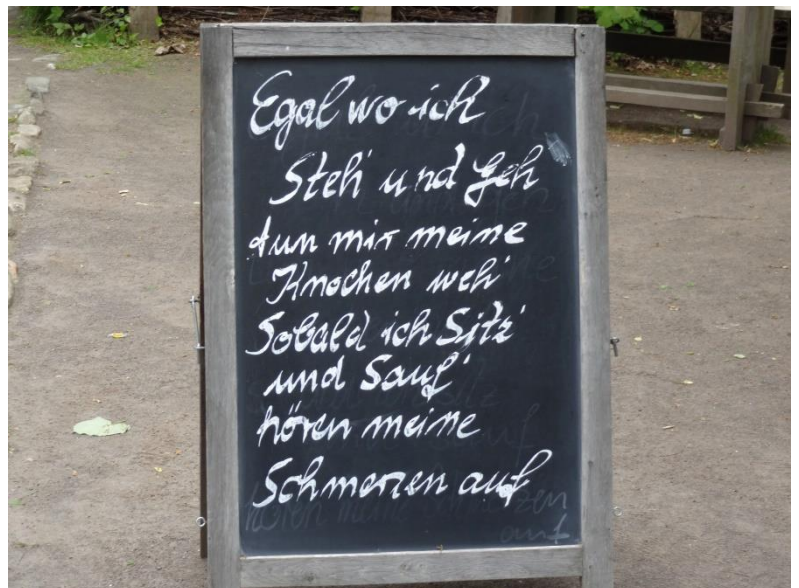 Egal wo ich
Steh' und Geh
tun mir meine
Knochen weh'
Sobald ich Sitz'
und Sauf'
hören meine
Schmerzen auf